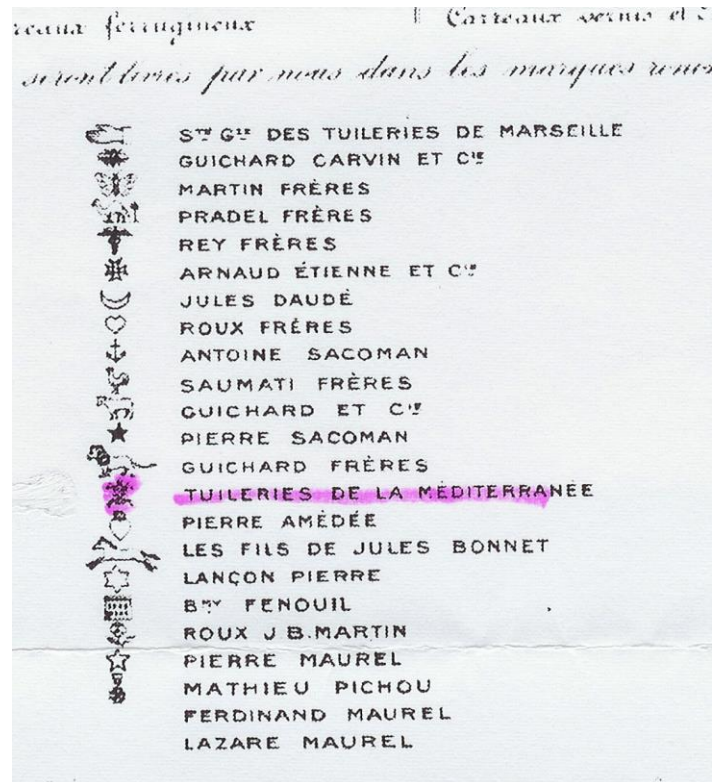 ferrugineux
Carreaux vernis et
seront livrés par nous dans les marques
STÉ GLE DES TUILERIES DE MARSEILLE
GUICHARD CARVIN ET CIE
MARTIN FRÈRES
PRADEL FRÈRES
REY FRÈRES
ARNAUD ÉTIENNE ET CIE
JULES DAUDÉ
ROUX FRÈRES
ANTOINE SACOMAN
SAUMATI FRÈRES
GUICHARD ET CIE
PIERRE SACOMAN
GUICHARD FRÈRES
TUILERIES DE LA MÉDITERRANÉE
PIERRE AMÉDÉE
LES FILS DE JULES BONNET
LANÇON PIERRE
BMY FENOUIL
ROUX J.B.MARTIN
PIERRE MAUREL
MATHIEU PICHOU
FERDINAND MAUREL
LAZARE MAUREL